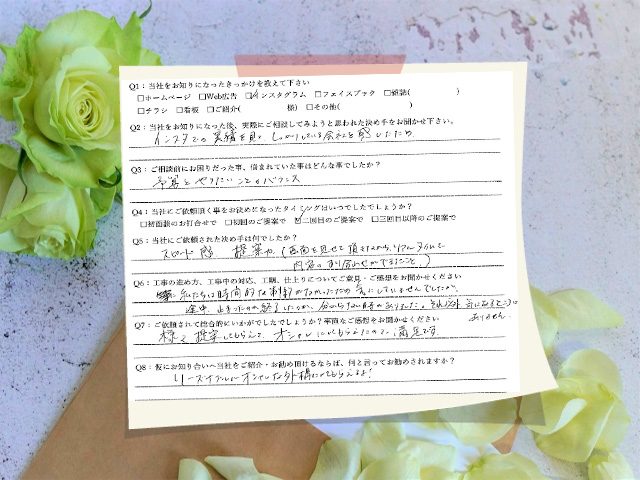 Q1：当社をお知りになったきっかけを教えて下さい
□ホームページ □Web広告 ☑インスタグラム □フェイスブック □雑誌( )
□チラシ □看板 □ご紹介( 様) □その他( )
Q2：当社をお知りになった後、実際にご相談してみようと思われた決め手をお聞かせ下さい。
インスタでの実績を見て しっかりしている会社と感じたため
Q3：ご相談前にお困りだった事、悩まれていた事はどんな事でしたか？
予算とやりたいことのバランス
Q4：当社にご依頼頂く事をお決めになったタイミングはいつでしたでしょうか？
□初面談のお打合せで □初回のご提案で ☑二回目のご提案で □三回目以降のご提案で
Q5：当社にご依頼された決め手は何でしたか？
スピード感 提案力 (画面を見せて頂きながら、リアルタイムに
内容のすり合わせができること)
Q6：工事の進め方、工事中の対応、工期、仕上りについてご意見・ご感想をお聞かせください
私たちは時間的な制約がなかったため気にしていませんでしたが、
途中、止まったのか終了したのか、分からない時がありました。それ以外 気になるところは
ありません。
Q7：ご依頼されて総合的にいかがでしたでしょうか？率直なご感想をお聞かせください
様々提案してもらえて、オシャレにしてもらえたので、満足です。
Q8：仮にお知り合いへ当社をご紹介・お勧め頂けるならば、何と言ってお勧めされますか？
リーズナブルにオシャレな外構にしてもらえるよ！